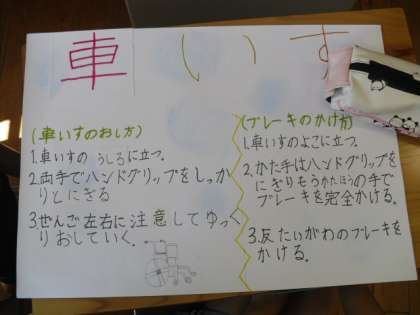 車いす
(車いすのおし方)
1.車いすの うしろに立つ.
2.両手でハンドグリップをしっか
りとにぎる
3.ぜんご左右に注意してゆっく
りおしていく.
(ブレーキのかけ方)
1.車いすのよこに立つ.
2.かた手はハンドグリップを
にぎりもうかたほうの手で
ブレーキを完全かける.
3.反たいがわのブレーキを
かける.